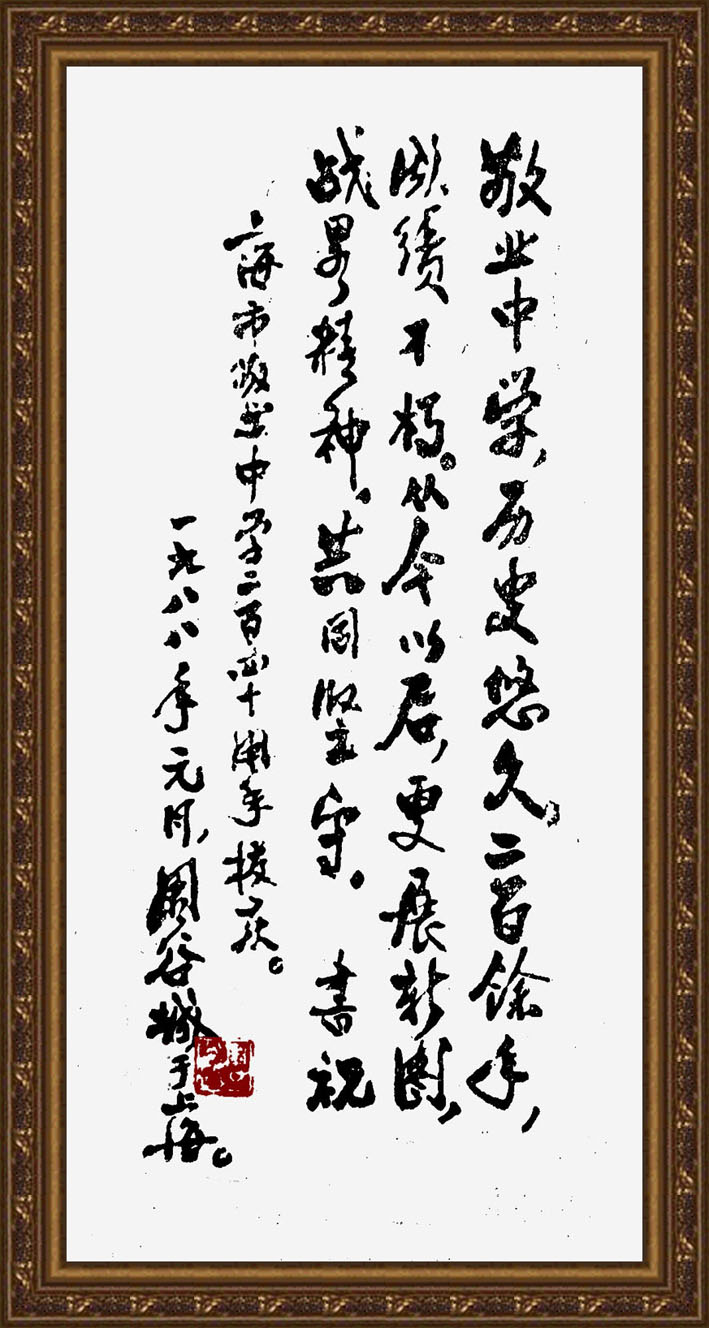 敬业中学,历史悠久,二百餘年,
绩不朽。从今以后,更展新,
战畧精神,共同坚守。書祝
上海市敬业中学二百四十周年校庆。
一九八八年元月,周谷城于上海。